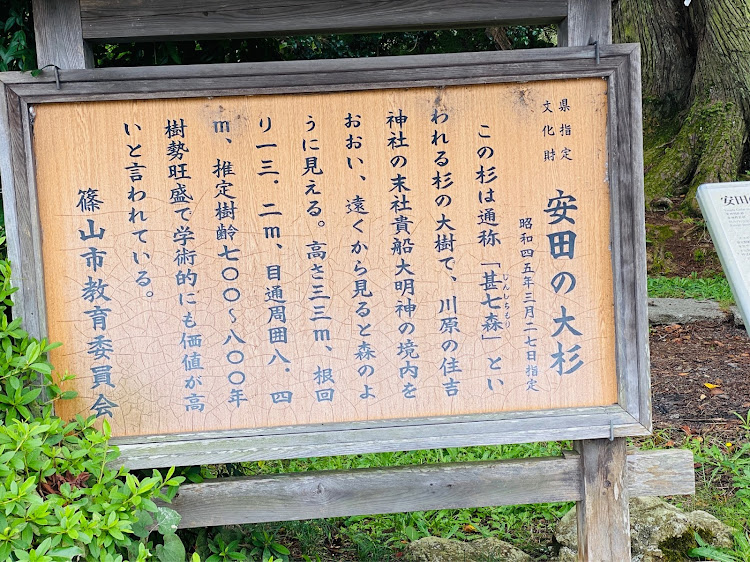 県指定
文化財
安田の大杉
昭和四五年三月二七日指定
この杉は通称「甚七森」とい
じんしちもり
われる杉の大樹で、川原の住吉
神社の末社貴船大明神の境内を
おおい、遠くから見ると森のよ
うに見える。高さ三三m、根回
り一三.二m、目通周囲八.四
m、推定樹齢七〇〇~八〇〇年
樹勢旺盛で学術的にも価値が高
いと言われている。
篠山市教育委員会
安田